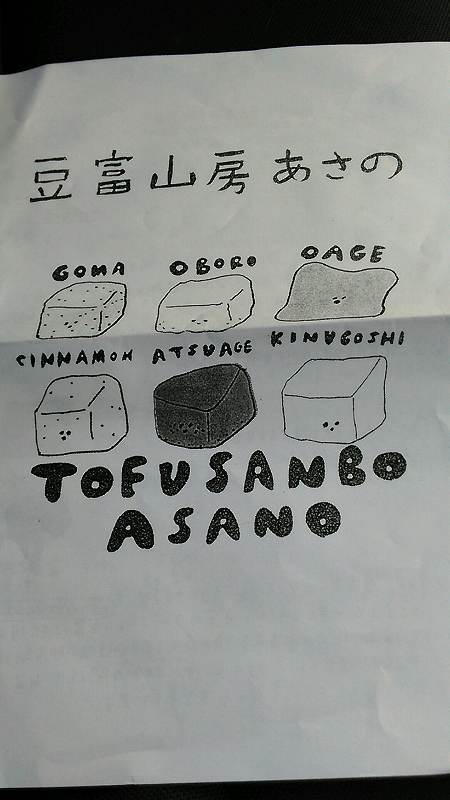 豆富山房 あさの
GOMA OBORO OAGE
CINNAMON ATSUAGE KINUGOSHI
TOFUSANBO
ASANO